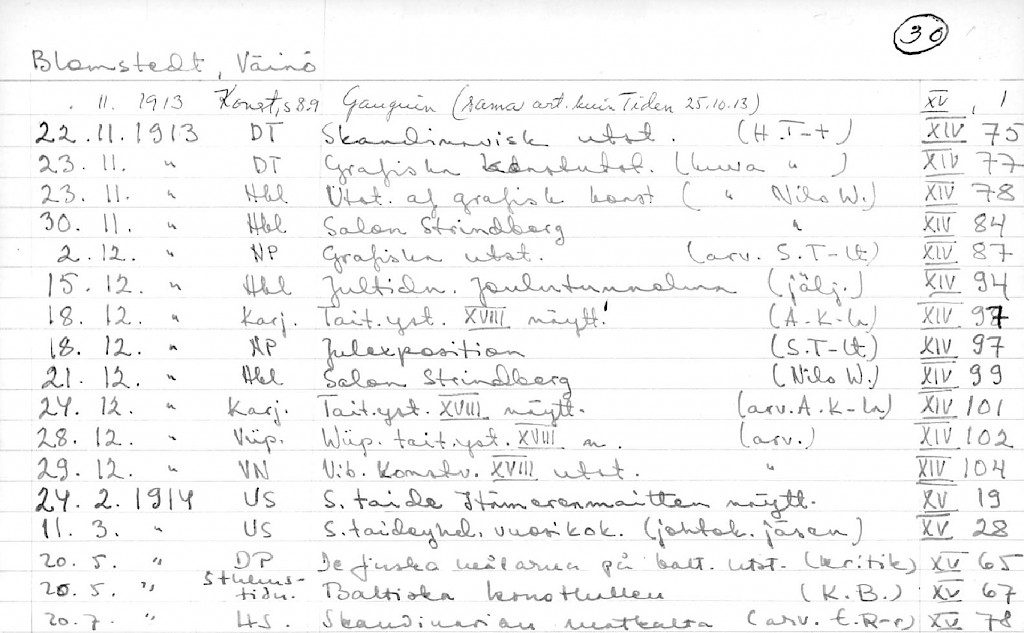 30
Blomstedt, Väinö
. 11. 1913 Konst, s 8.9 Gauguin (sama art. kuin Tiden 25.10.13) XV, 1
22. 11. 1913 DT Skandinavisk utst. (H. T-t) XIV 75
23. 11. " DT Grafiska konstutst. (kuva " ) XIV 77
23. 11. " Hbl Utst. af grafisk konst ( " Nils W.) XIV 78
30. 11. " Hbl Salon Strindberg " XIV 84
2. 12. " NP Grafiska utst. (arv. S. T-lt) XIV 87
15. 12. " Hbl Jultidn. Joulutunnelma (jälj.) XIV 94
18. 12. " Karj. Tait.yst. XVIII näytt. (A. K-la) XIV 97
18. 12. " NP Julexposition (S.T-lt) XIV 97
21. 12. " Hbl Salon Strindberg (Nils W.) XIV 99
24. 12. " Karj. Tait.yst. XVIII näytt. (arv. A. K-la) XIV 101
28. 12. " Wiip. Wiip. tait.yst. XVIII n. (arv.) XIV 102
29. 12. " VN Vib. Konstv. XVIII utst. " XIV 104
24. 2. 1914 US S. taide Itämerenmaitten näytt. XV 19
11. 3. " US S. taideyhd. vuosikok. (johtok. jäsen) XV 28
20. 5. " DP De finska målarna på balt. utst. (kritik) XV 65
20. 5. " Sthlms-tidn. Baltiska konsthallen (K.B.) XV 67
20. 7. " HS. Skandinavian matkalta (arv. E. R-r) XV 78